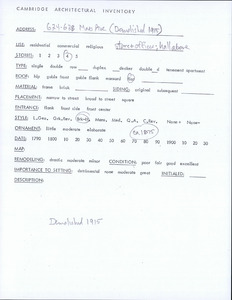 CAMBRIDGE ARCHITECTURAL INVENTORY
ADDRESS: 624-628 Mass Ave (Demolished 1975)
USE: residential commercial religious stores+offices, hall above
STORIES: 1 2 3 4 5
TYPE: single double row duplex decker double d tenement apartment
ROOF: hip gable front gable flank mansard flat
MATERIAL: frame brick SIDING: original subsequent
PLACEMENT: narrow to street broad to street
ENTRANCE: flank front side front center
STYLE: L.Geo, Grk.Rev, Brack, Mans, Med, Q.A, C.Rev, None+ None-
ORNAMENT: little moderate elaborate ca. 1875
DATE: 1790 1800 10 20 30 40 50 60 70 80 90 1900 10 20 30
MAP:
REMODELING: drastic moderate minor CONDITION: poor fair good excellent
IMPORTANCE TO SETTING: detrimental none moderate great INITIALED:
DESCRIPTION:
Demolished 1975